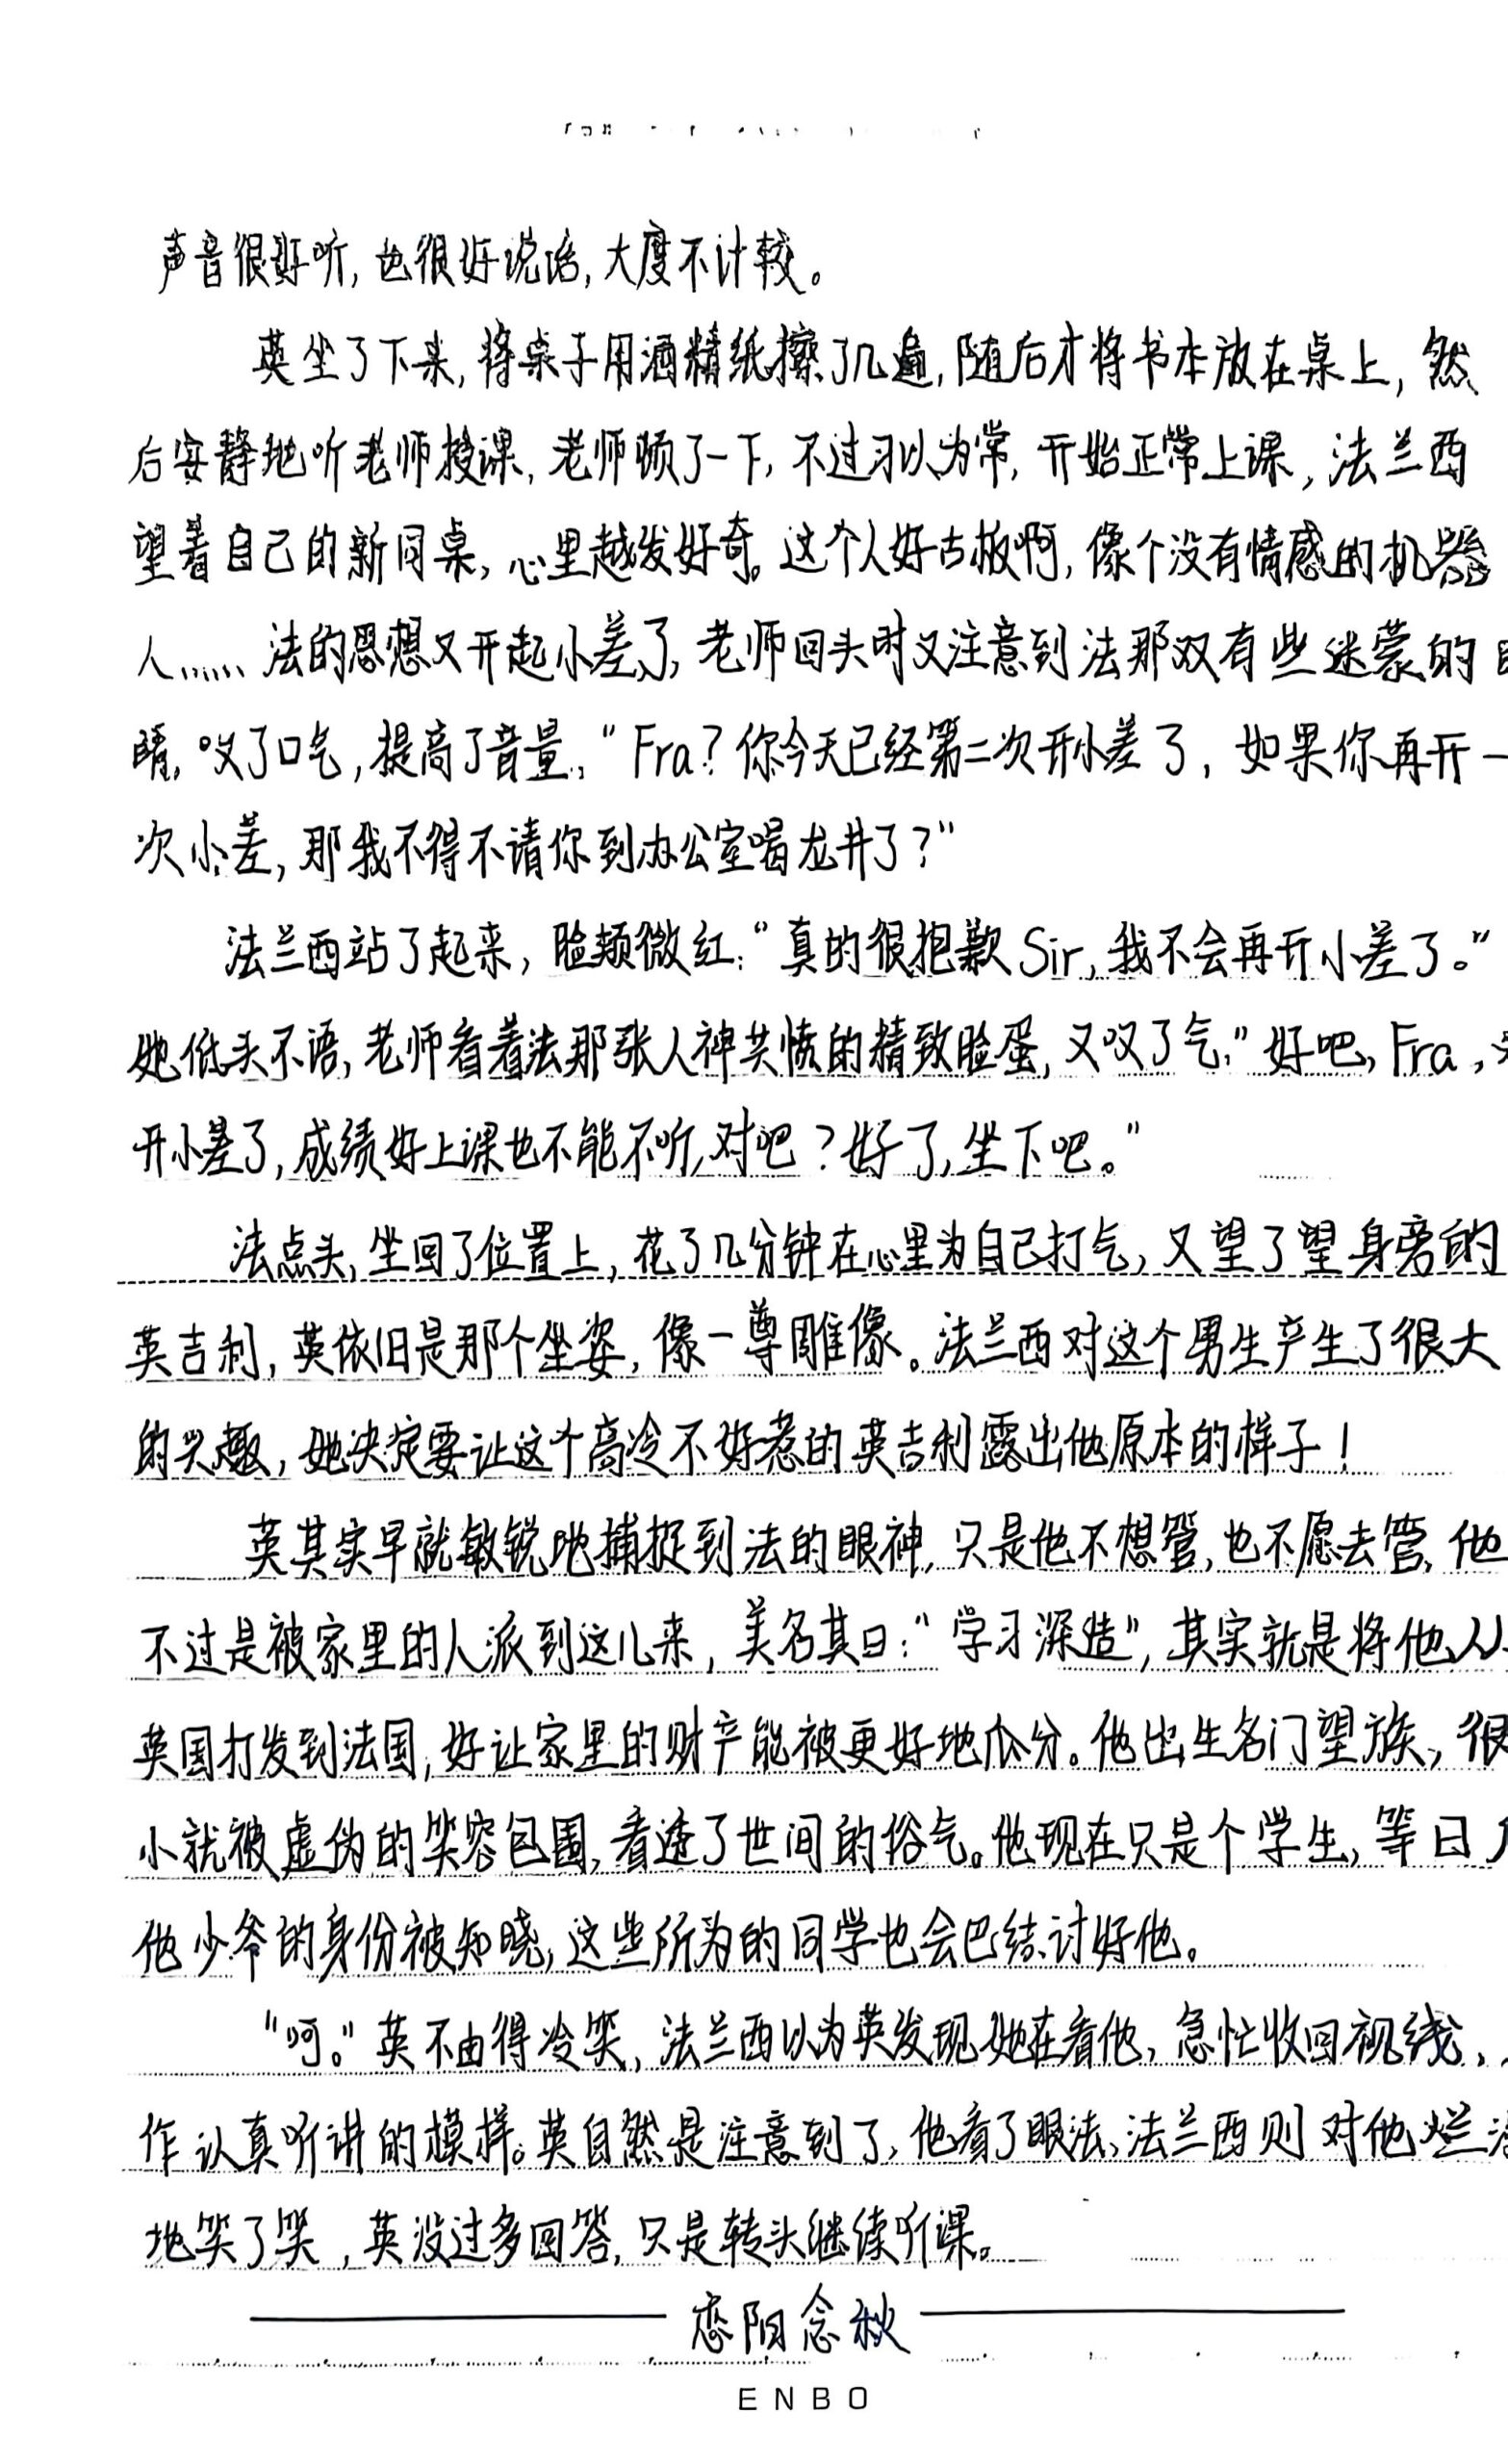 声音很好听,也很好说话,大度不计较。
英坐了下来,将桌子用酒精纸擦了几遍,随后才将书本放在桌上,然
后安静地听老师授课,老师顿了一下,不过习以为常,开始正常上课,法兰西
望着自己的新同桌,心里越发好奇。这个人好古板啊,像个没有情感的机器
人……法的思想又开起小差了,老师回头时又注意到法那双有些迷蒙的
睛,叹了口气,提高了音量:“Fra?你今天已经第二次开小差了,如果你再开一
次小差,那我不得不请你到办公室喝龙井了?”
法兰西站了起来,脸颊微红:“真的很抱歉Sir,我不会再开小差了。”
她低头不语,老师看着法那张人神共愤的精致脸蛋,又叹了气:”好吧,Fra,
开小差了,成绩好上课也不能不听,对吧?好了,坐下吧。”
法点头,坐回了位置上,花了几分钟在心里为自己打气,又望了望身旁的
英吉利,英依旧是那个坐姿,像一尊雕像。法兰西对这个男生产生了很大
的兴趣,她决定要让这个高冷不好惹的英吉利露出他原本的样子!
英其实早就敏锐地捕捉到法的眼神,只是他不想管,也不愿去管,他
不过是被家里的人派到这儿来,美名其曰:“学习深造”,其实就是将他从
英国打发到法国,好让家里的财产能被更好地瓜分。他出生名门望族,很
小就被虚伪的笑容包围,看透了世间的俗气。他现在只是个学生,等日
他少爷的身份被知晓,这些所为的同学也会巴结讨好他。
“呵。”英不由得冷笑,法兰西以为英发现她在看他,急忙收回视线,
作认真听讲的模样。英自然是注意到了,他看了眼法,法兰西则对他烂
地笑了笑,英没过多回答,只是转头继续听课。
恋阳念秋
ENBO